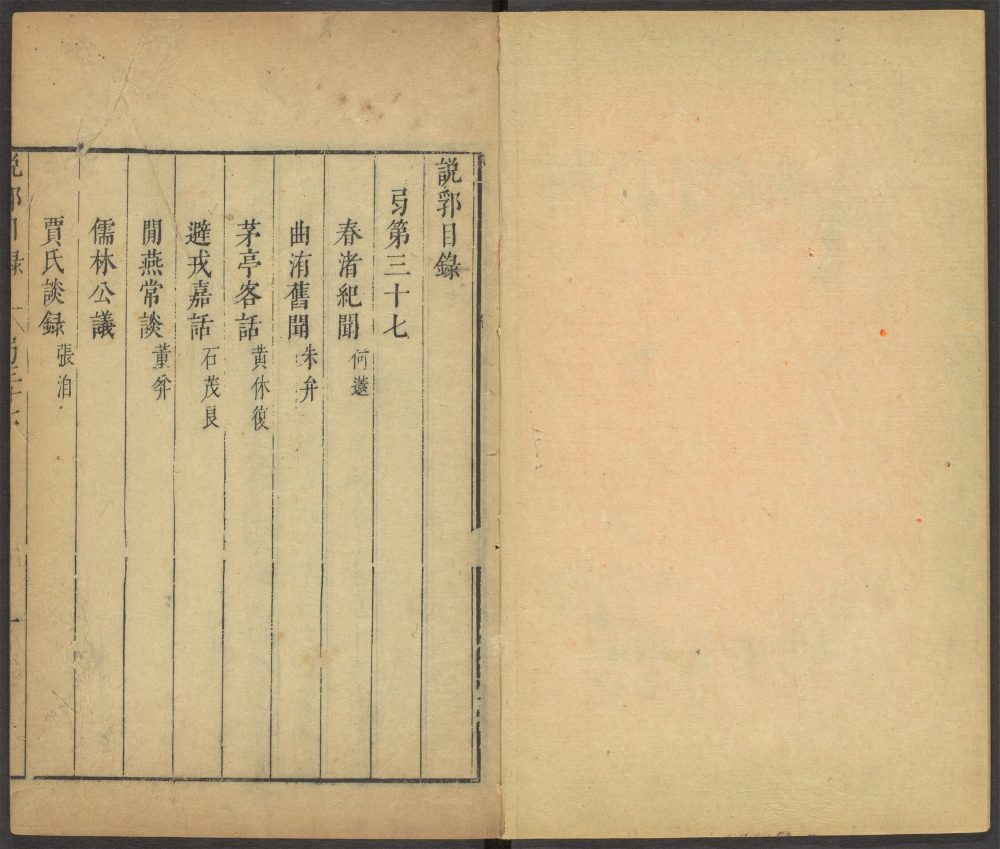 說郛目錄
弓第三十七
春渚紀聞 何薳
曲洧舊聞 朱弁
茅亭客話 黄休復
避戎嘉話 石茂良
閒燕常談 董弅
儒林公議
賈氏談録 張洎